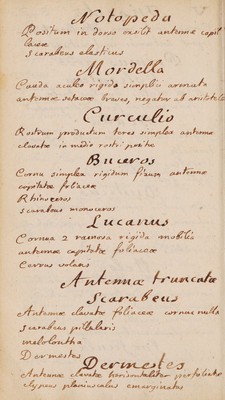 Notopeda
Positum in dorso exilit antennæ capil
laceæ
Scarabeus elasticus
Mordella
Cauda aculeo rigida simplici armata
antennæ setaceæ breves, negatur ab aristotele
Curculio
Rostrum productum teres simplex antennæ
clavatæ in medio rostri positæ
Buceros
Cornu simplex rigidum fixum antennæ
capitatæ foliaceæ
Rhinoceros
Scarabeus monoceros
Lucanus
Cornua 2 ramosa rigida mobilia
antennæ capitatæ foliaceæ
Cervus volans
Antennæ truncatæ
Scarabeus
Antennæ clavatæ foliaceæ cornua nulla
Scarabeus pillularis
melolontha
Dermestes
Dermestes
Antennæ clavatæ horisontaliter perfoliatæ
clypeus planiusculus emarginatus